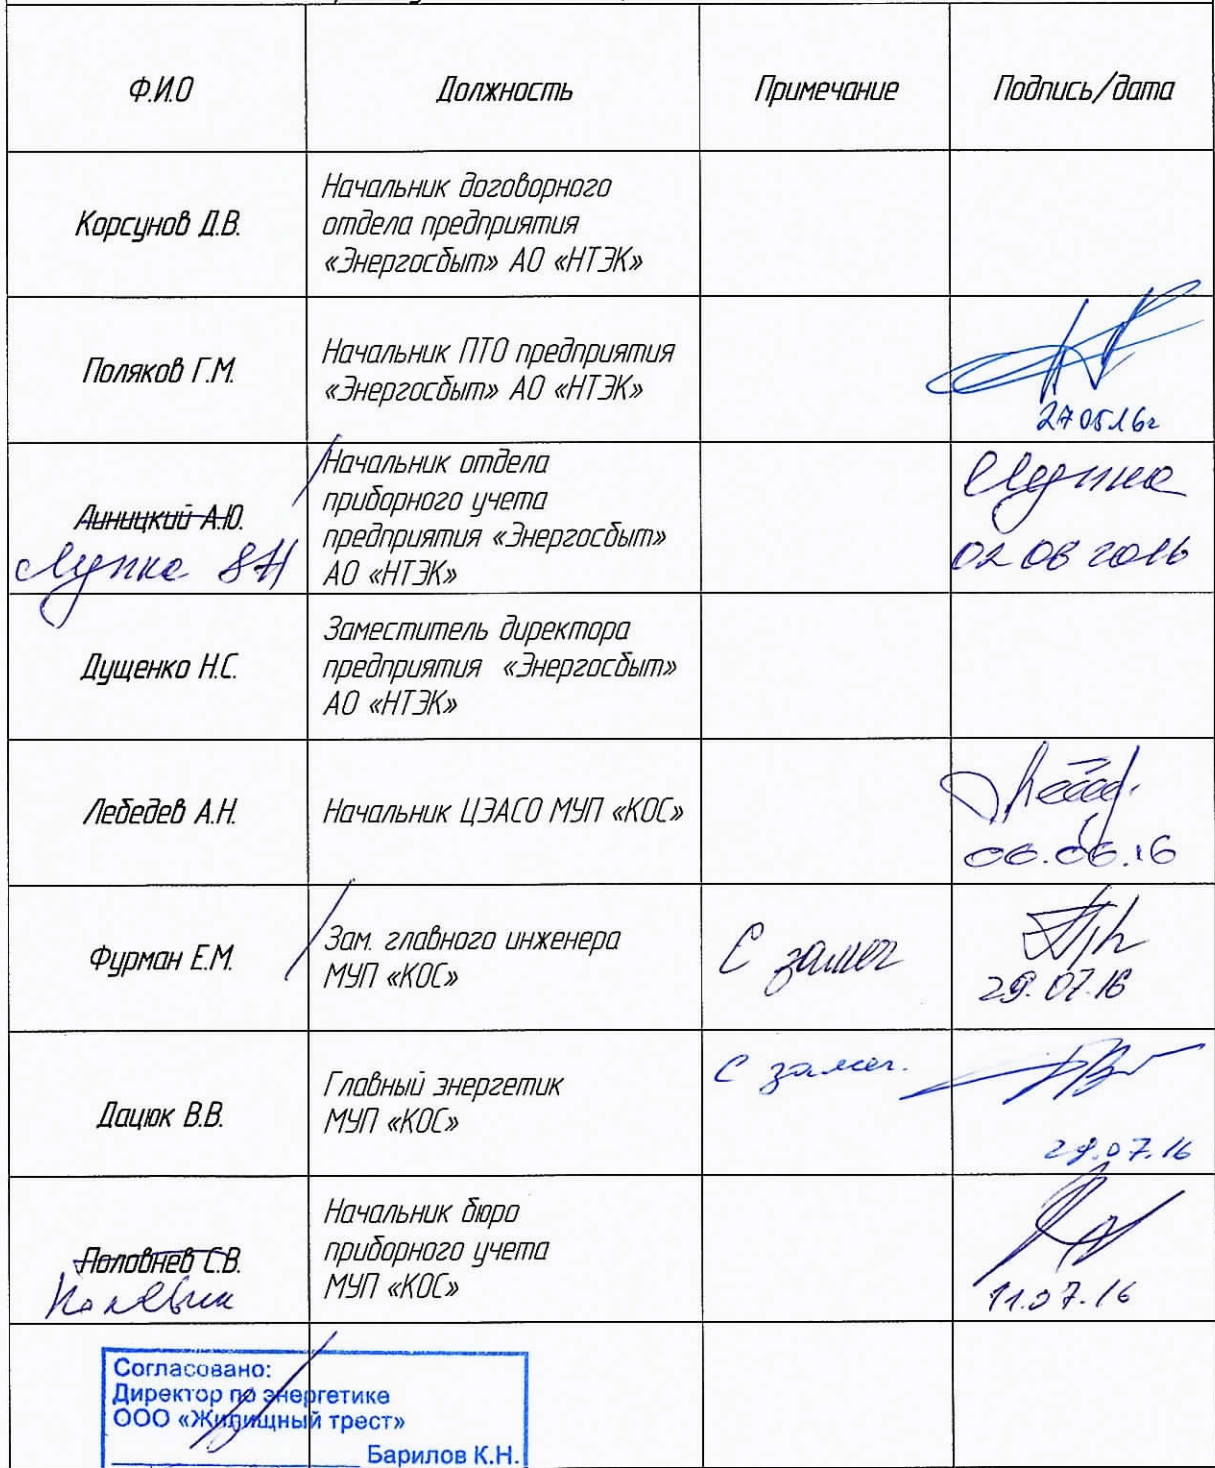 Ф.И.О
Должность
Примечание
Подпись/дата
Корсунов Д.В.
Начальник договорного
отдела предприятия
«Энергосбыт» АО «НТЭК»
Поляков Г.М.
Начальник ПТО предприятия
«Энергосбыт» АО «НТЭК»
27.05.16г
Линицкий А.Ю.
Начальник отдела
приборного учета
предприятия «Энергосбыт»
АО «НТЭК»
02 08 2016
Дущенко Н.С.
Заместитель директора
предприятия «Энергосбыт»
АО «НТЭК»
Лебедев А.Н.
Начальник ЦЭАСО МУП «КОС»
06.06.16
Фурман Е.М.
Зам. главного инженера
МУП «КОС»
С замеч
29.07.16
Дацюк В.В.
Главный энергетик
МУП «КОС»
С замеч.
29.07.16
Половнев С.В.
Начальник бюро
приборного учета
МУП «КОС»
11.07.16
Согласовано:
Директор по энергетике
ООО «Жилищный трест»
Барилов К.Н.